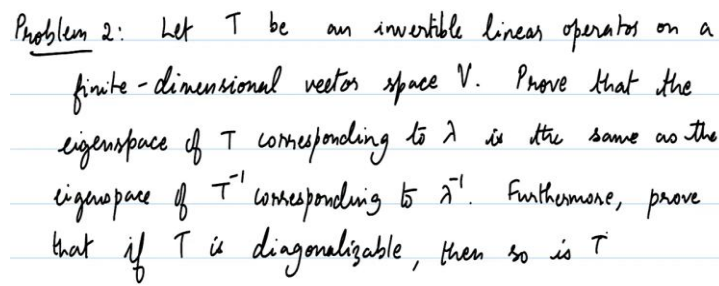 Problem 2: Let T be an invertible linear operator on a
finite-dimensional vector space V. Prove that the
eigenspace of T corresponding to λ is the same as the
eigenspace of T⁻¹ corresponding to λ⁻¹. Furthermore, prove
that if T is diagonalizable, then so is T